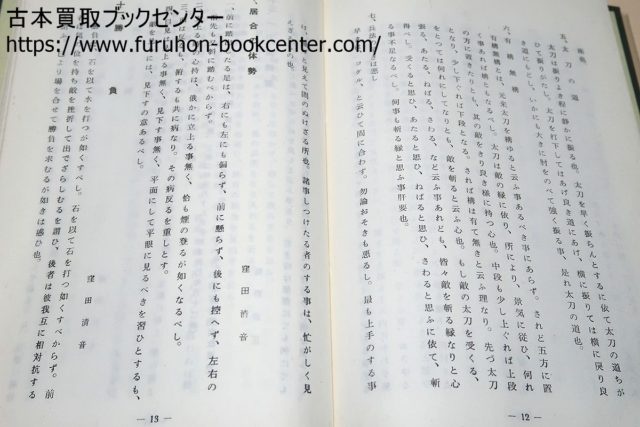 古本買取ブックセンター
https://www.furuhon-bookcenter.com/
五、太刀の道
太刀の道を
太刀を早く振らんとするに依て太刀の道ちが
ひて振りがたし。太刀を打下してはあげ良き道にあげ、横に振りては横に戻り良
き道にもどし、いかにも大きに肘をのべて強く振る事、是れ太刀の道也。
六、有構無構
有構無構とは、元来太刀を構ゆると云ふ事あるべき事にあらず。されど五方に置
く事あれば構ともなるべし。太刀は敵の縁に依り、所により、景気に従ひ、何れ
の方に置きたりとも、其の敵をきり良き様に持つ心也。中段も少し上ぐれば上段
となり、少し下ぐれば下段となる。されば構は有て無きと云ふ理なり。先づ太刀
をとつては何れにしてなりとも、敵を斬ると云ふ心也。もし敵の太刀を受くる、
張る、あたる、ねばる、さわる、など云ふ事あれども、皆々敵を斬る縁なりと心
得べし。受くると思ひ、あたると思ひ、ねばると思ひ、さわると思ふに依て、斬
る事不足なるべし。何事も斬る縁と思ふ事肝要也。
七、兵法の早きは悪し
早きはコケルと云ひて間に合わず。勿論おそきも悪るし。最も上手のする事
— 12 —
は、と見えて間のぬけざる所也。諸事しつけたる者のする事は、忙がしく見
えざるもの也。
居合の体勢
窪田清音
前に踏みたる足は、右にも左にも偏らず、前に懸らず、後にも控へず、左右の
先も前に踏むべからず。
持は、俄かに立上る事無く、恰も煙の登るが如くなるべし。
も、俯するも共に病なり。その病反るを重しとす。
は、見上る事無く、見下す事無く、平面にして平眼に見るべきを習ひとするも、
見下すの意あるべし。
十勝負
窪田清音
石を以て水を打つが如くすべし。石を以て石を打つ如くすべからず。前
を持ち敵を挫折して出でざらしむるを謂ひ、後者は彼我互に相対抗する
より場を合せて勝負を求むるが如きは惑ひ也。
— 13 —